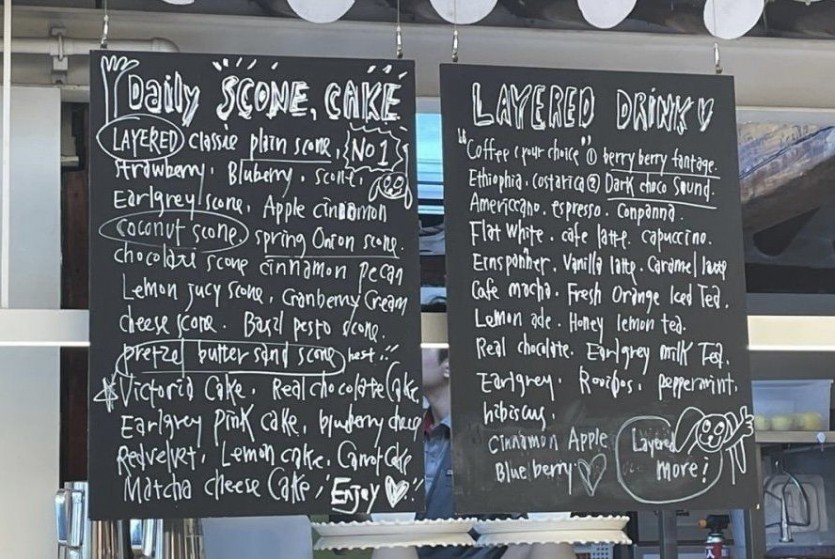 Daily SCONE, CAKE
LAYERED classic plain scone, No 1
strawberry. Bluberry. scone,
Earlgrey scone, Apple cinnamon
coconut scone, spring Onion scone.
chocolate scone cinnamon pecan
Lemon jucy scone, Cranberry Cream
cheese scone. Basil pesto scone.
pretzel butter sand scone best!!
☆ Victoria Cake, Real chocolate Cake,
Earlgrey pink cake, blueberry cheese
Redvelvet, Lemon cake, Carrot Cake
Matcha cheese Cake, Enjoy ♡!!
LAYERED DRINK ♡
"Coffee (your choice" ① berry berry fantage.
Ethiophia. costarica ② Dark choco Sound.
Americcano. espresso. Conpanna.
Flat White. cafe latte. capuccino.
Einspanner. Vanilla latte. Caramel latte
Cafe mocha. Fresh Orange Iced Tea.
Lemon ade. Honey lemon tea.
Real chocolate. Earlgrey milk Tea.
Earlgrey. Rooibos. peppermint.
hibiscus.
cinnamon Apple
Blueberry ♡
Layered
more!